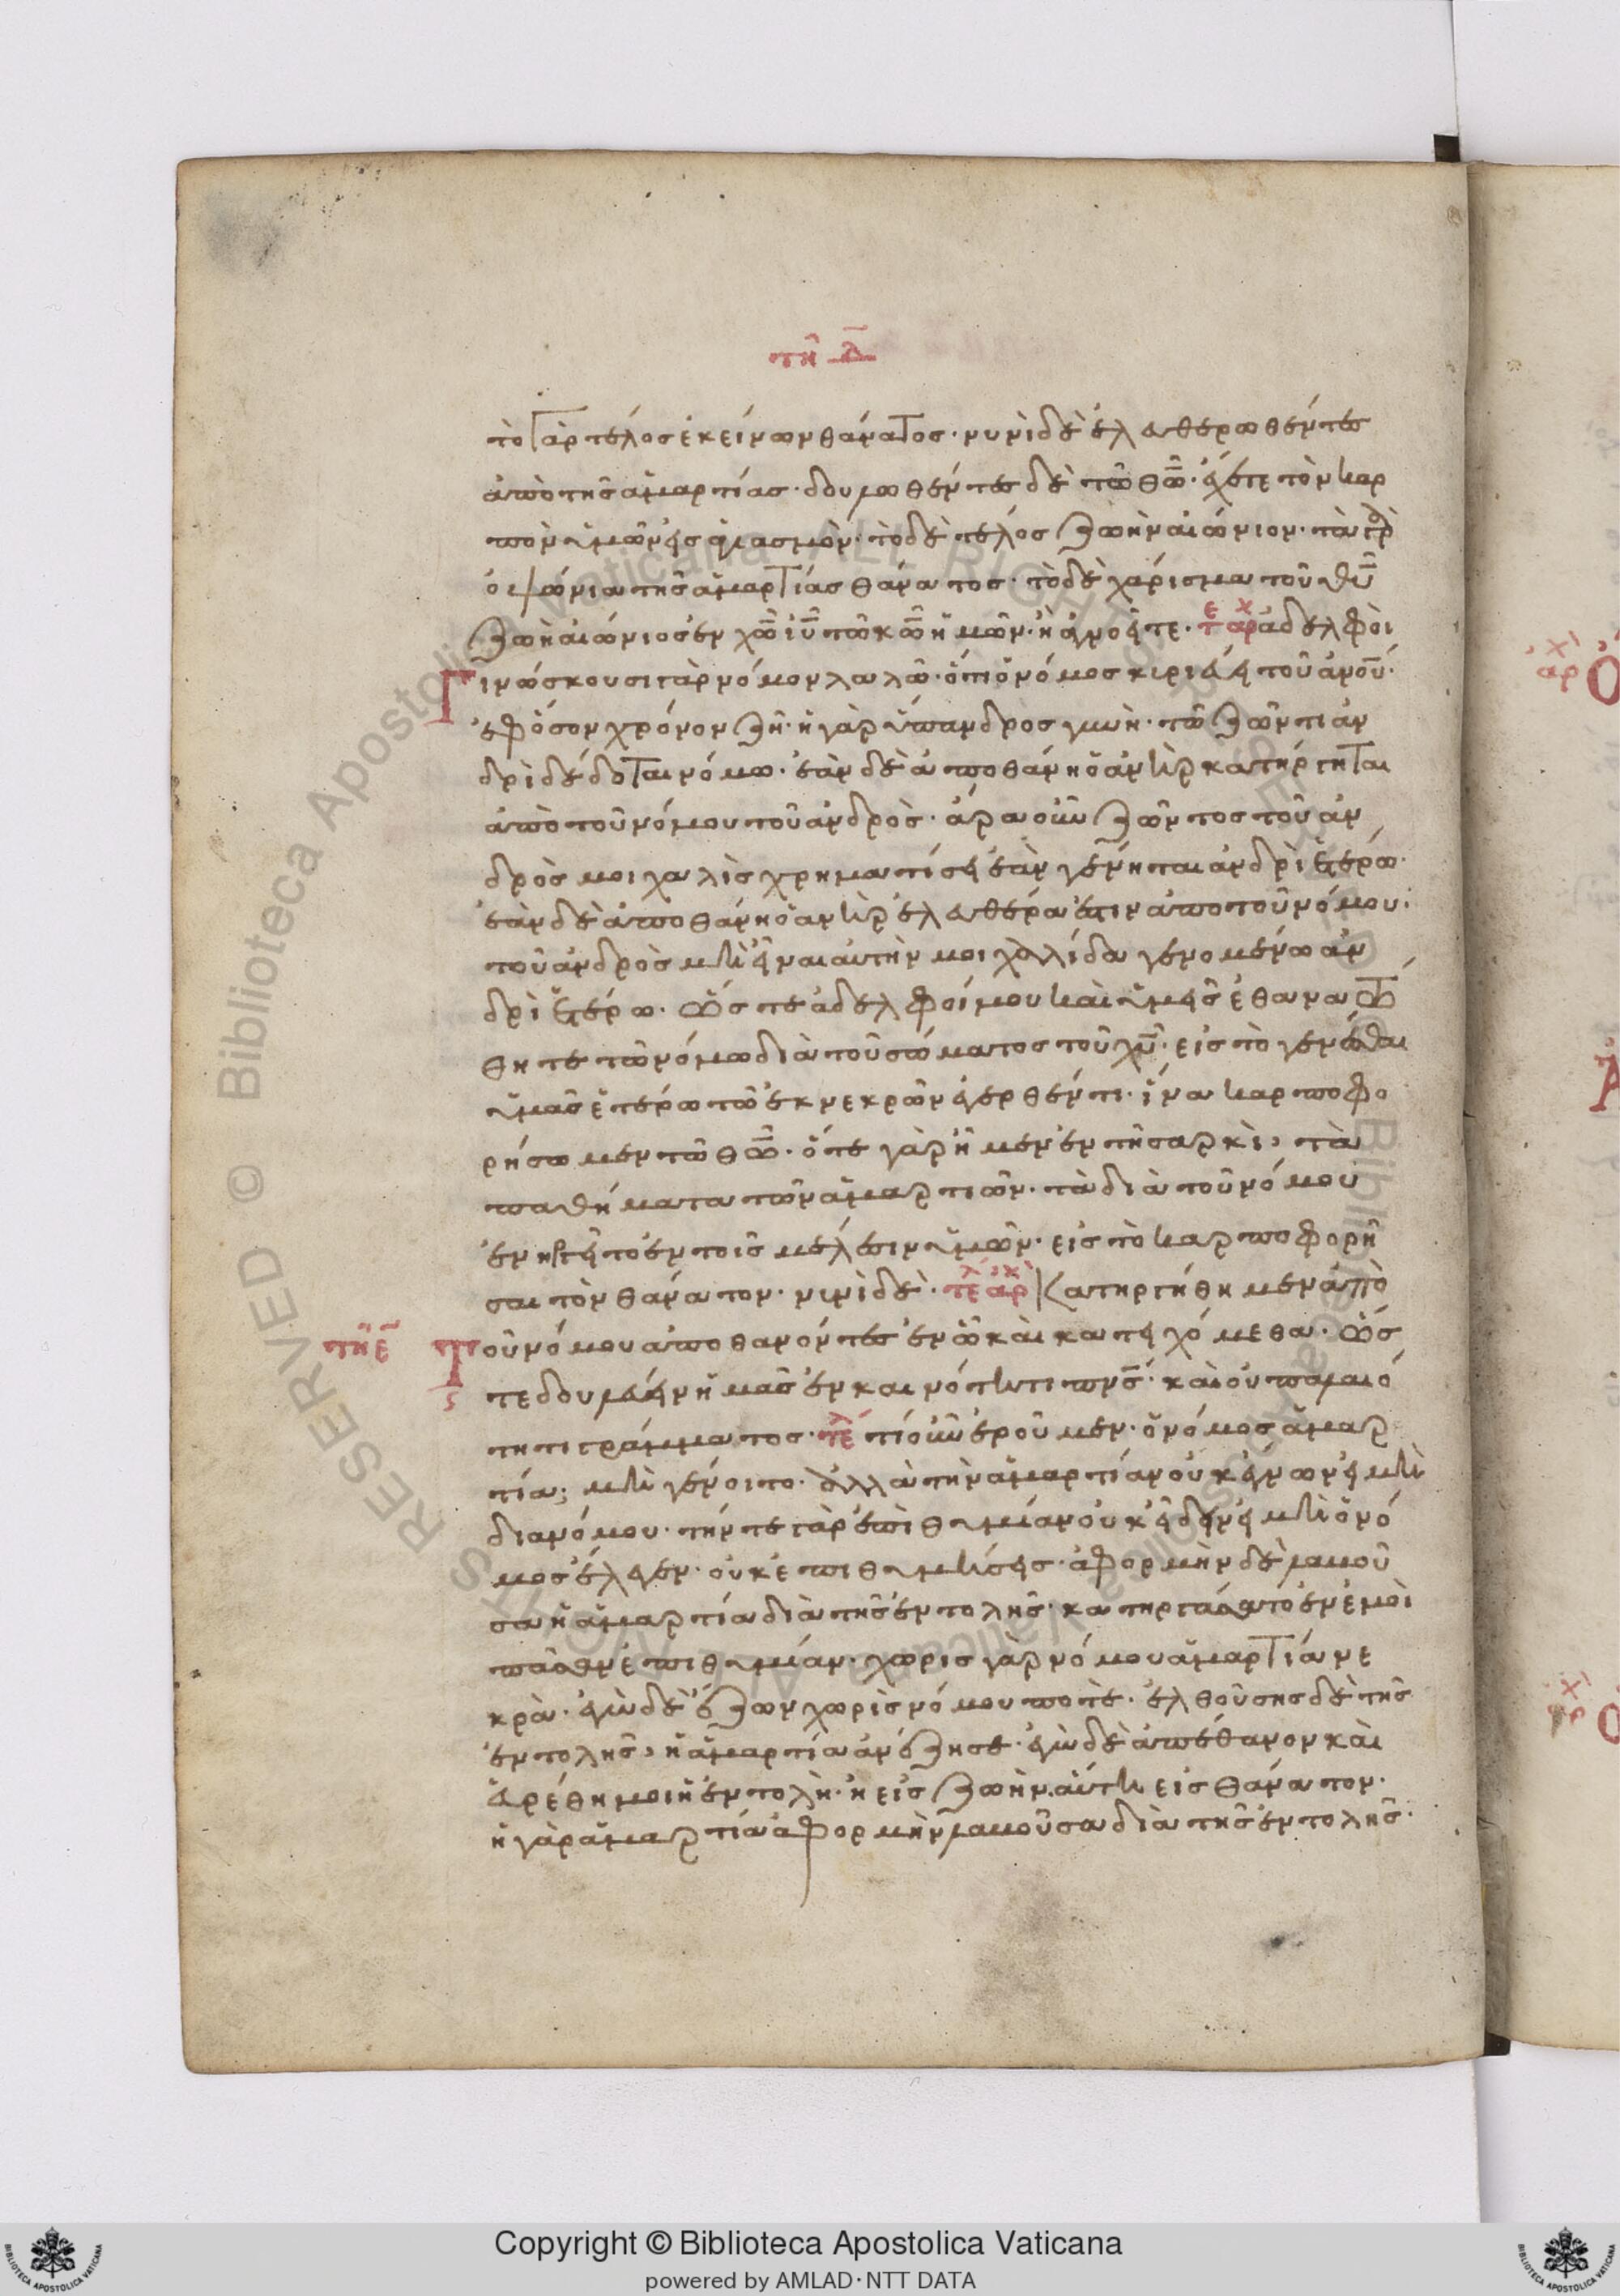 τῆ δ̅
τὸ γὰρ τέλος ἐκείνων θάνατος· νυνὶ δὲ ἐλευθερωθέντες
ἀπὸ τῆς ἁμαρτίας· δουλωθέντες δὲ τῶ θω̅· ἔχετε τὸν καρ
πὸν ὑμῶν εἰς ἁγιασμὸν· τὸ δὲ τέλος ζωὴν αἰώνιον· τὰ γὰρ
ὀψώνια τῆς ἁμαρτίας θάνατος· τὸ δὲ χάρισμα τοῦ θυ̅
ζωὴ αἰώνιος ἐν χω̅ ιυ̅ τῶ κω̅ ἡμῶν· ἢ ἀγνοεῖτε· ἀδελφοὶ
Γινώσκουσι γὰρ νόμον λαλῶ· ὅτι ὁ νόμος κυριεύει τοῦ ἀνου̅·
ἐφόσον χρόνον ζῆ· ἡ γὰρ ὕπανδρος γυνὴ· τῶ ζῶντι ἀν
δρὶ δέδοται νόμω· ἐὰν δὲ ἀποθάνη ὁ ἀνὴρ κατήργηται
ἀπὸ τοῦ νόμου τοῦ ἀνδρὸς· ἄρα οὖν ζῶντος τοῦ ἀν
δρὸς μοιχαλὶς χρηματίσει ἐὰν γένηται ἀνδρὶ ἑτέρω·
ἐὰν δὲ ἀποθάνη ὁ ἀνὴρ ἐλευθέρα ἐστιν ἀπο τοῦ νόμου·
τοῦ ἀνδρὸς μὴ εἶναι αὐτὴν μοιχαλίδα γενομένω ἀν
δρὶ ἑτέρω· ὥστε ἀδελφοί μου καὶ ὑμεῖς ἐθανατώ
θητε τῶ νόμω διὰ τοῦ σώματος τοῦ χυ̅· εἰς τὸ γενέσθαι
ὑμᾶς ἑτέρω τῶ ἐκ νεκρῶν ἐγερθέντι· ἵνα καρποφο
ρήσωμεν τῶ θω̅· ὅτε γὰρ ἦμεν ἐν τῆ σαρκὶ, τὰ
παθήματα τῶν ἁμαρτιῶν· τὰ διὰ τοῦ νόμου
ἐνηργεῖτο ἐν τοῖς μέλεσιν ὑμῶν· εἰς τὸ καρποφορῆ
σαι τὸν θάνατον· νυνὶ δὲ· τελ αρχ κατηργήθημεν ἀπὸ
τῆ ε̅ Τοῦ νόμου ἀποθανόντες ἐν ὧ καὶ κατειχόμεθα· ὥσ
τε δουλεύειν ἡμᾶς ἐν καινότητι πνς̅· καὶ οὐ παλαιό
τητι γράμματος· τελ τί οὖν ἐροῦμεν· ὁ νόμος ἁμαρ
τία; μὴ γένοιτο· ἀλλὰ τὴν ἁμαρτίαν οὐκ ἔγνων εἰ μὴ
διανόμου· τήν τε γὰρ ἐπιθυμίαν οὐκ ἤδειν εἰ μὴ ὁ νό
μος ἔλεγεν· οὐκ ἐπιθυμήσεις· ἀφορμὴν δὲ λαβοῦ
σα ἡ ἁμαρτία διὰ τῆς ἐντολῆς· κατηργάσατο ἐν ἐμοὶ
πᾶσαν ἐπιθυμίαν· χωρὶς γὰρ νόμου ἁμαρτία νε
κρὰ· ἐγὼ δὲ ἔζων χωρὶς νόμου ποτὲ· ἐλθούσης δὲ τῆς
ἐντολῆς, ἡ ἁμαρτία ἀνέζησε· ἐγὼ δὲ ἀπέθανον καὶ
εὑρέθη μοι ἡ ἐντολὴ· ἡ εἰς ζωὴν αὕτη εἰς θάνατον·
ἡ γὰρ ἁμαρτία ἀφορμὴν λαβοῦσα διὰ τῆς ἐντολῆς·
RESERVED © Biblioteca Apostolica Vaticana ALL RIGHTS
Copyright © Biblioteca Apostolica Vaticana
powered by AMLAD·NTT DATA